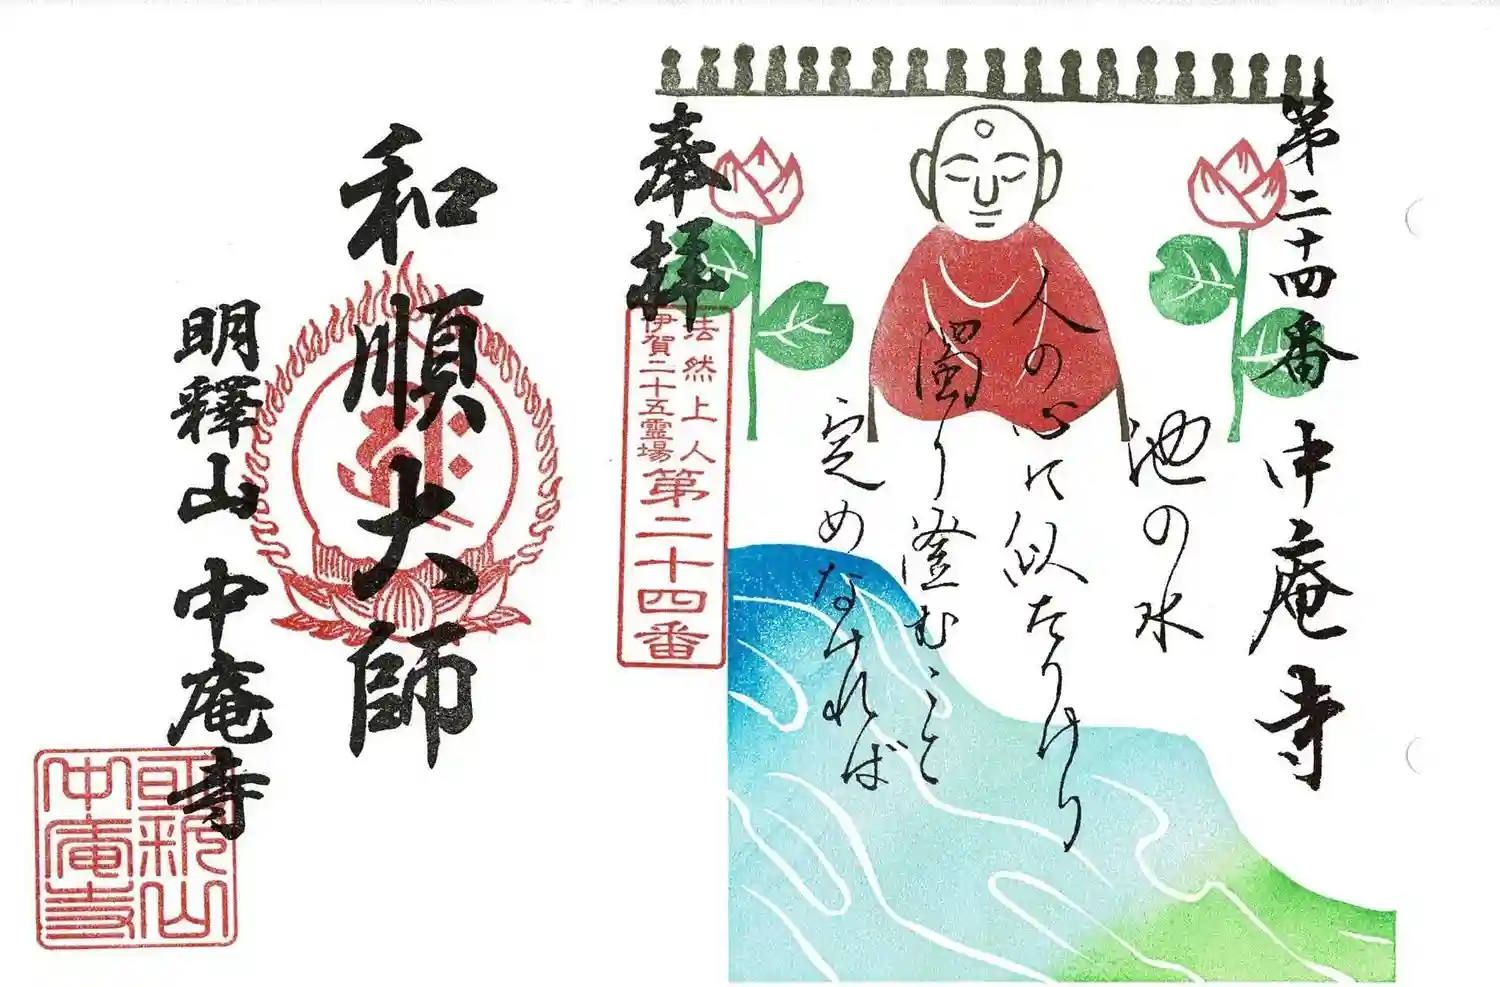 第二十四番 中庵寺
池の水
人の心に似たりけり
濁り澄むこと
定めなければ
奉拝
法然上人
伊賀二十五霊場
第二十四番
和順大師
明釋山 中庵寺
山
中庵寺